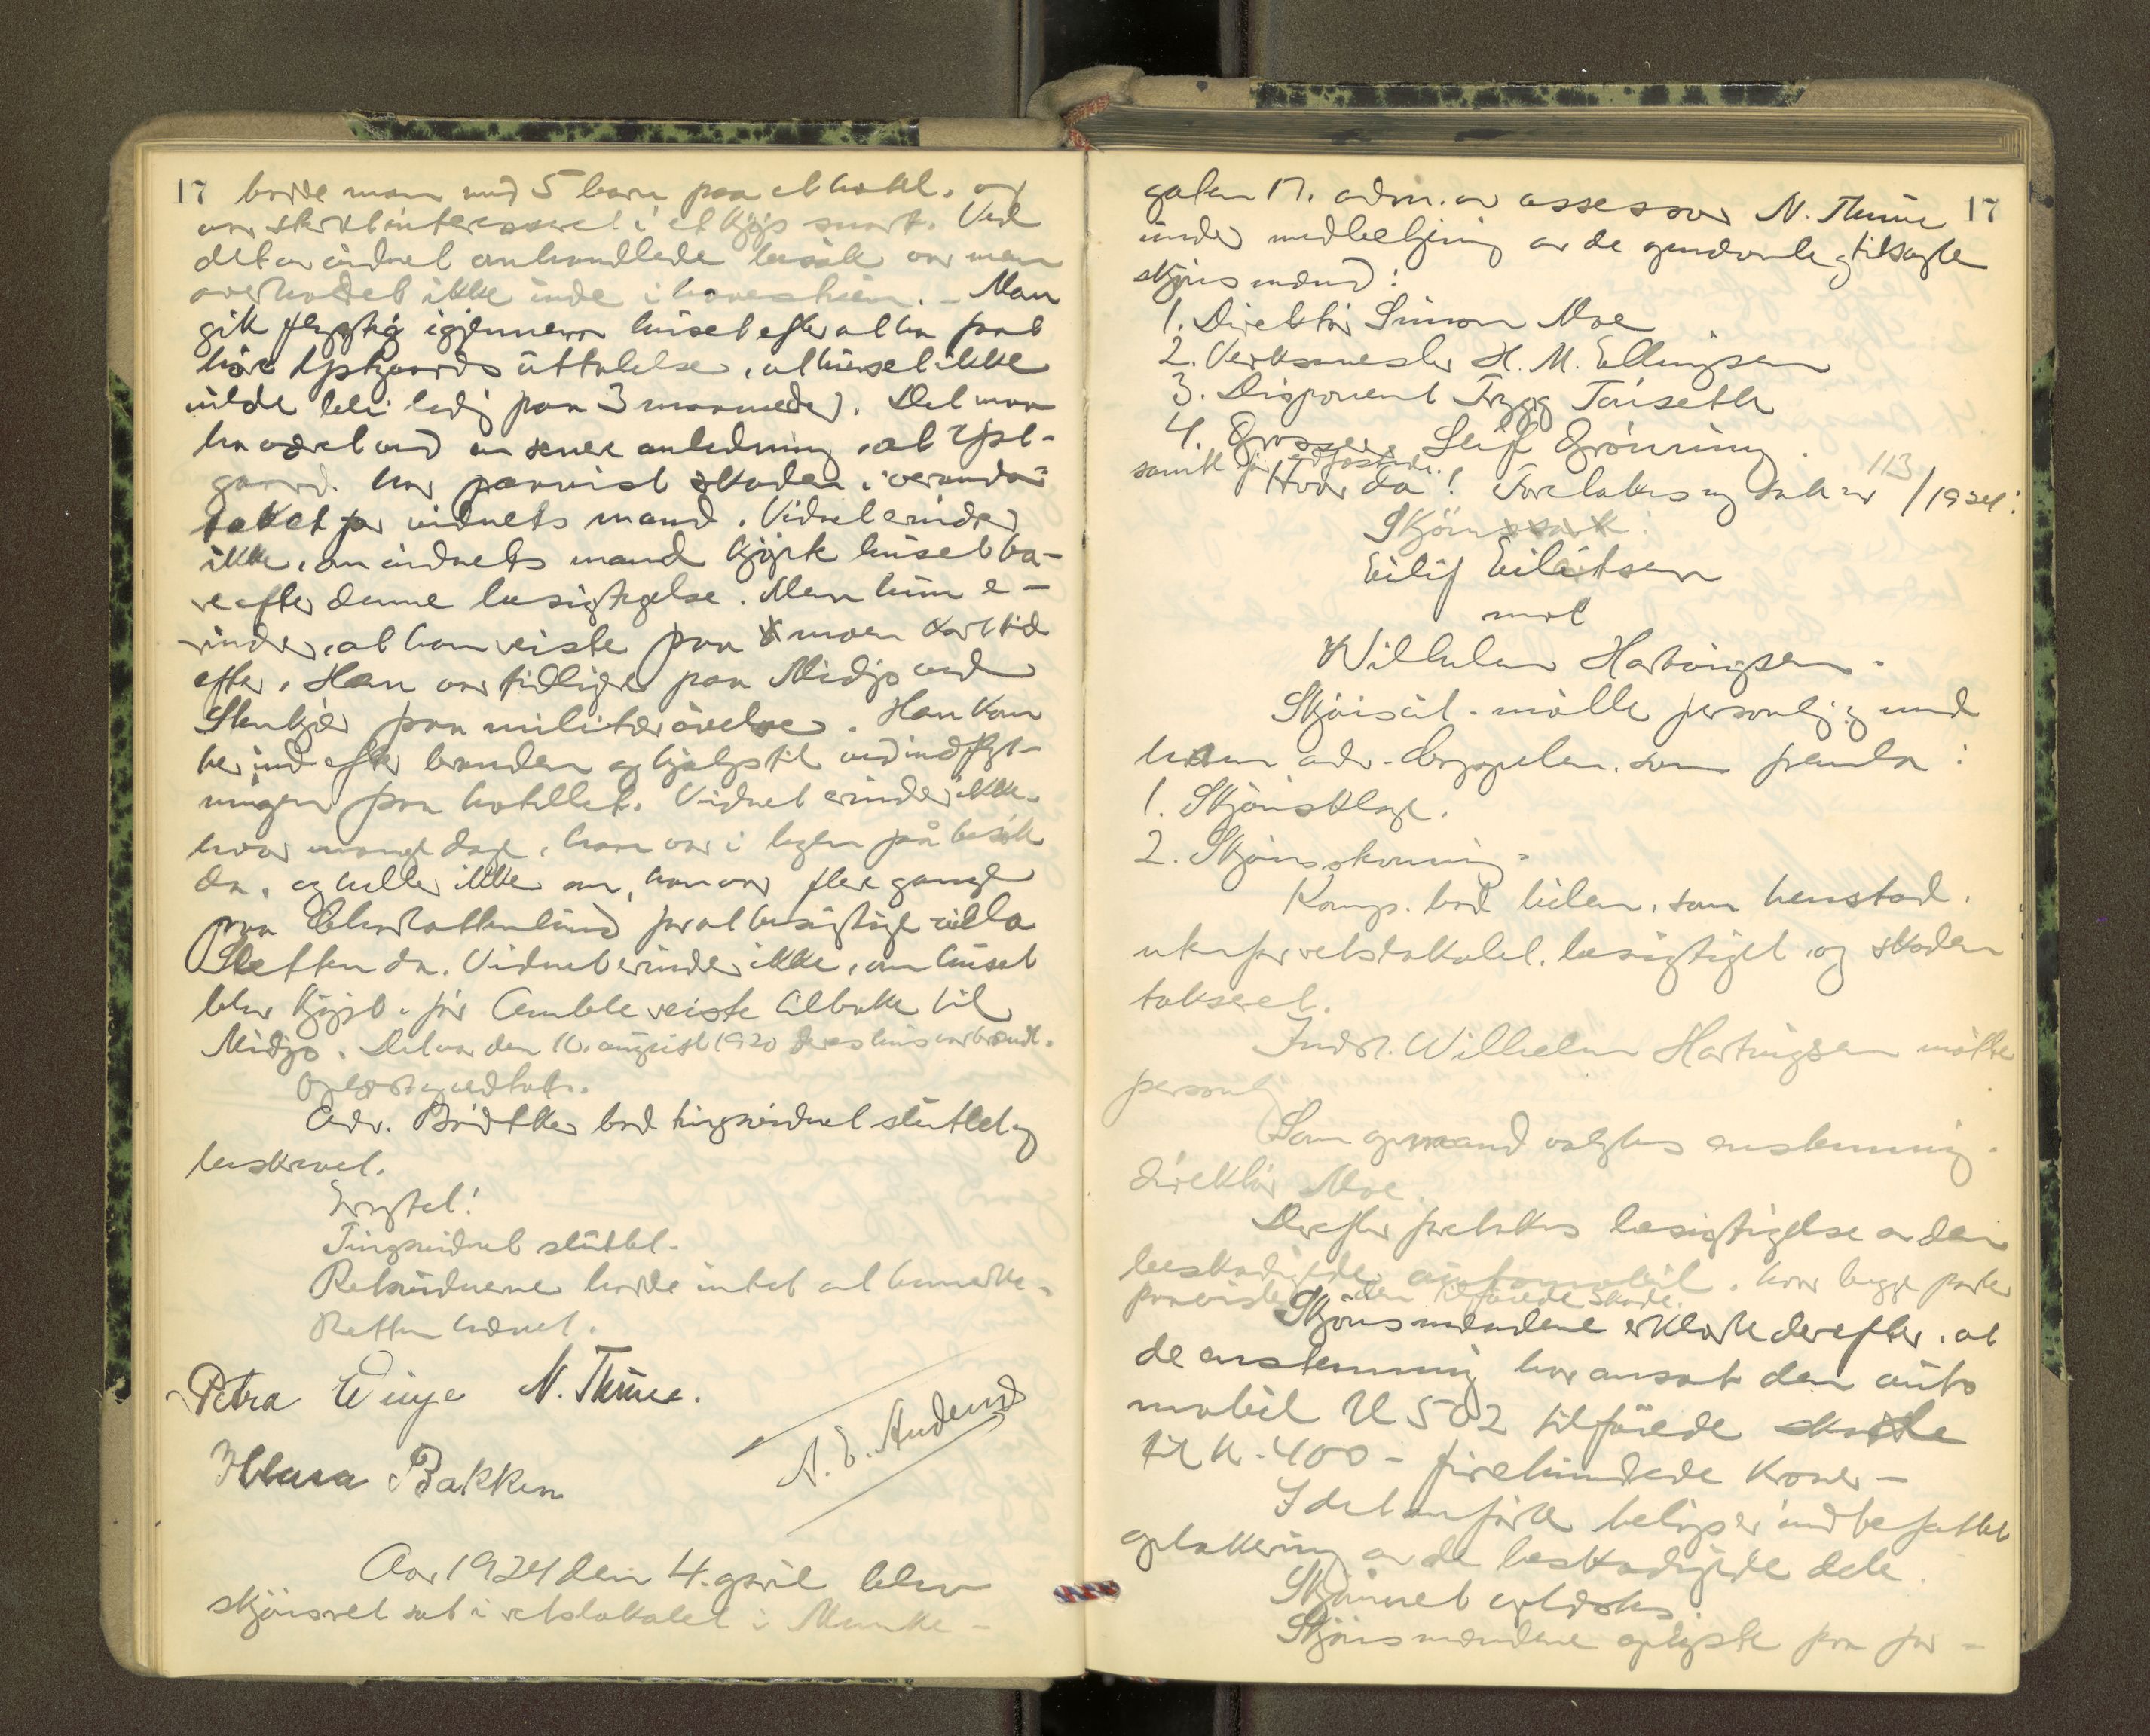 17
bodde man med 5 barn paa et hotel. og
var sterkt interesseret i et kjøp snart. Ved
det av vidnet omhandlede besøk var man
overhodet ikke inde i
gik flygtig igjennem huset efter at ha faat
høre Lystgaards uttalelse, at huset ikke
vilde bli ledig paa 3 maaneder. Det maa
ha været ved en senere anledning, at Lyst-
gaard har paavist skaden i veranda-
taket for vidnets mand. Vidnet erindrer
ikke, om vidnets mand kjøpte huset ba-
re efter denne besigtigelse. Men hun e-
rindrer, at han reiste paa moen kort tid
efter. Han var tidligere paa Midjo ved
Stenkjær paa militærøvelse. Han kom
her ind efter branden og hjalp til ved indflyt-
ningen paa hotellet. Vidnet erindrer ikke
hvor mange dage, han var i byen på besøk
da, og heller ikke om, han var flere gange
paa Charlottenlund for at besigtige villa
Sletten da. Vidnet erindrer ikke, om huset
blev kjøpt, før Amble reiste tilbake til
Midjo. Det var den 10. august 1920 deres hus var brændt.
Oplæst og vedtat.
Adv. Bødtker bad tingsvidnet sluttet og
beskrevet.
Tingsvidnet sluttet.
Retsvidnerne hadde intet at bemerke.
Retten hævet.
Petra Winge N. Thime.
Bakken
Aar 1924 den 4. april blev
skjønsret sat i retslokalet i Munke-
17
gaten 17. adm. av assessor N. Thime
under medbetjening av de opnævnte og tilsagte
skjønsmænd:
1. Direktør Simon Moe
2. Verksmester H. M. Ellingsen
3. Disponent Trygg Tønseth
4. Grosserer Leif Grønning.
samtl. før edfæstede.
Hvor da! Foretokes og sak nr 113/1924:
Skjøn
Eilif Eilertsen
mot
Wilhelm Hartvigsen.
Skjønscit. møtte personlig og med
ham adv. som fremla:
1. Skjønsklage.
2. Skjønsstevning.
Komp. bad bilen, som henstod
utenfor retslokalet, besigtiget og skaden
takseret.
Indst. Wilhelm Hartvigsen møtte
personlig
Som opmand valgtes enstemmig
direktør Moe.
Derefter foretokes besigtigelse av den
beskadigede automobil, hvor begge parter
paaviste den tilføiede skade.
Skjønsmændene erklærte derefter, at
de enstemmig har ansat den auto
mobil U 502 tilføiede skade
til kr. 400 - firehundrede kroner -
I det anførte beløp er indbefattet
oplakering av de beskadigede dele.
Skjønnet
Skjønsmændene oplyste paa for-